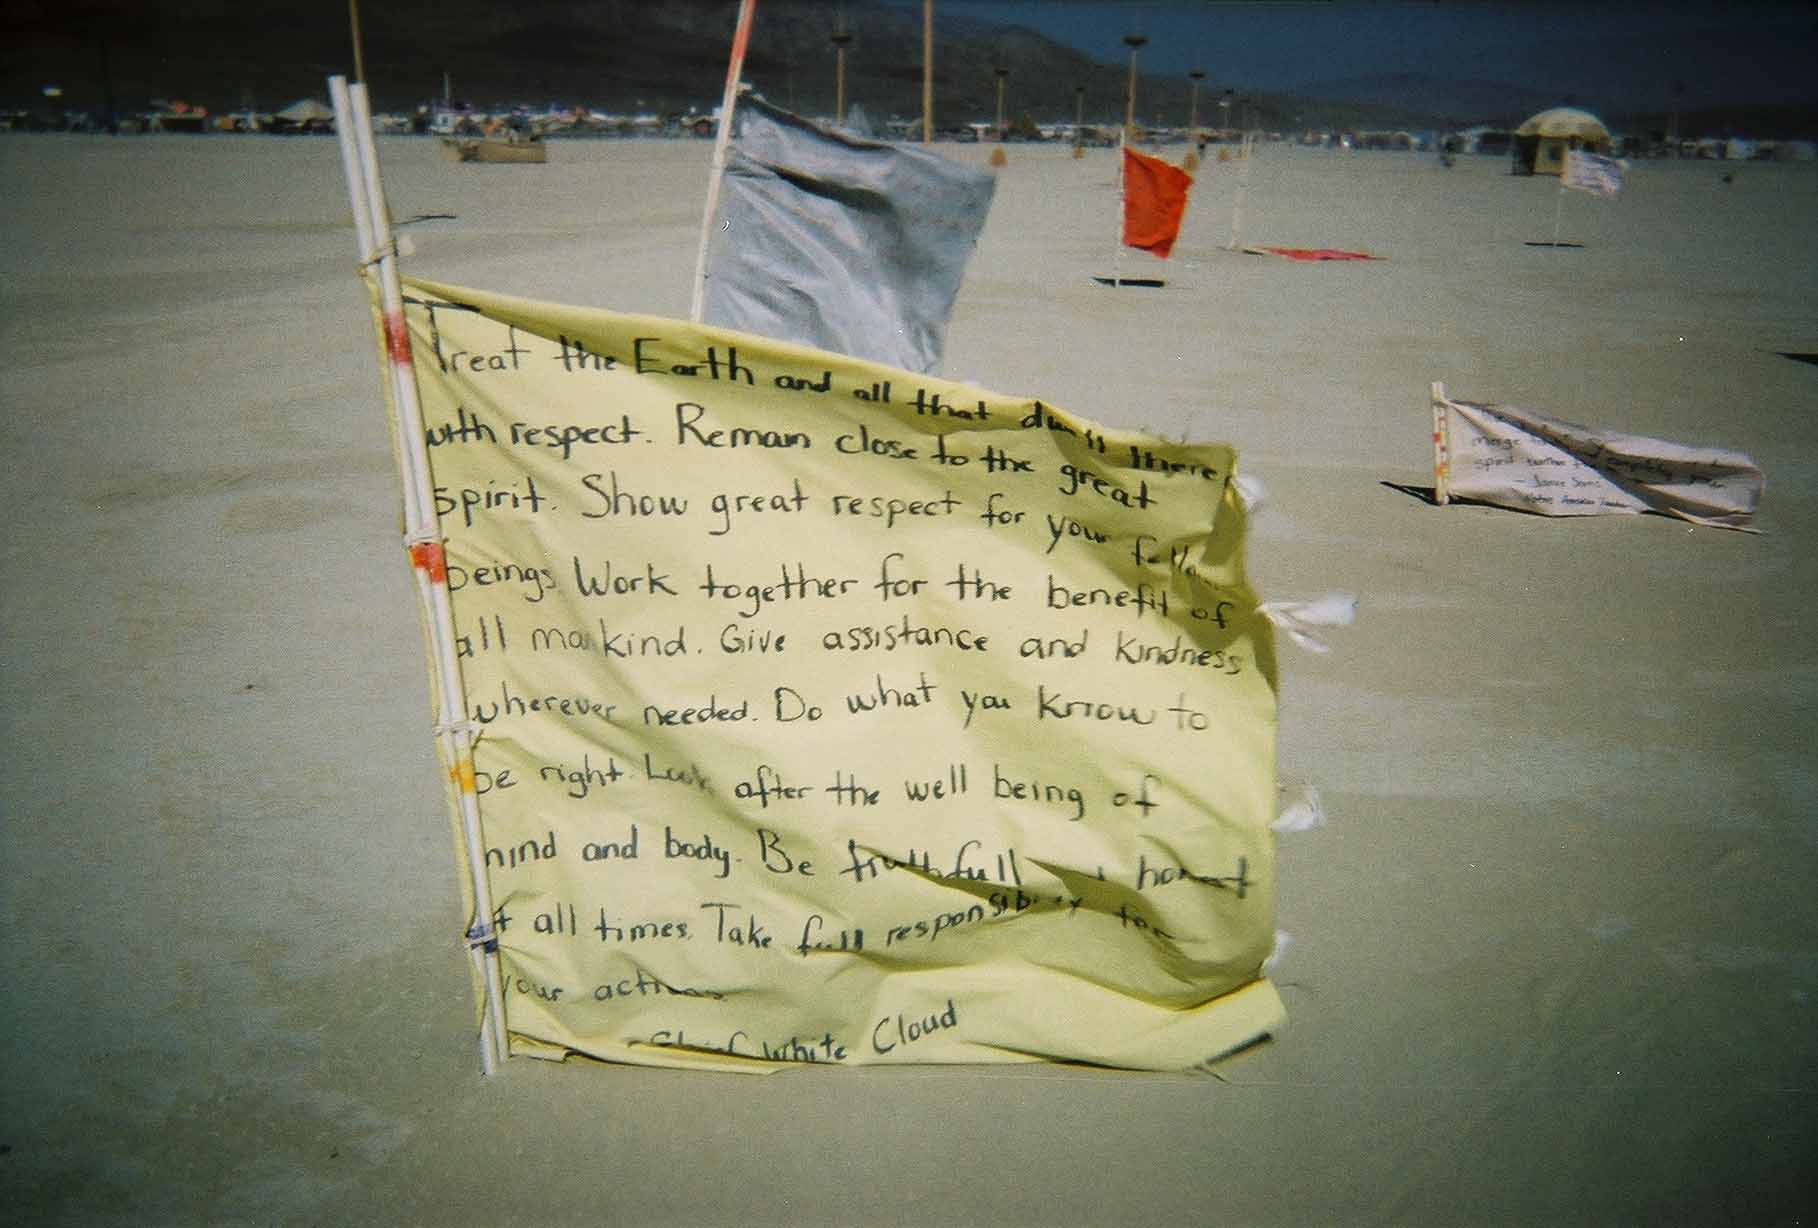 Treat the Earth and all that dwells there
with respect. Remain close to the great
spirit. Show great respect for your fellow
beings. Work together for the benefit of
all mankind. Give assistance and kindness
wherever needed. Do what you know to
be right. Look after the well being of
mind and body. Be truthfull honest
at all times. Take full responsibility for
your actions
- Chief White Cloud
merge
spirit